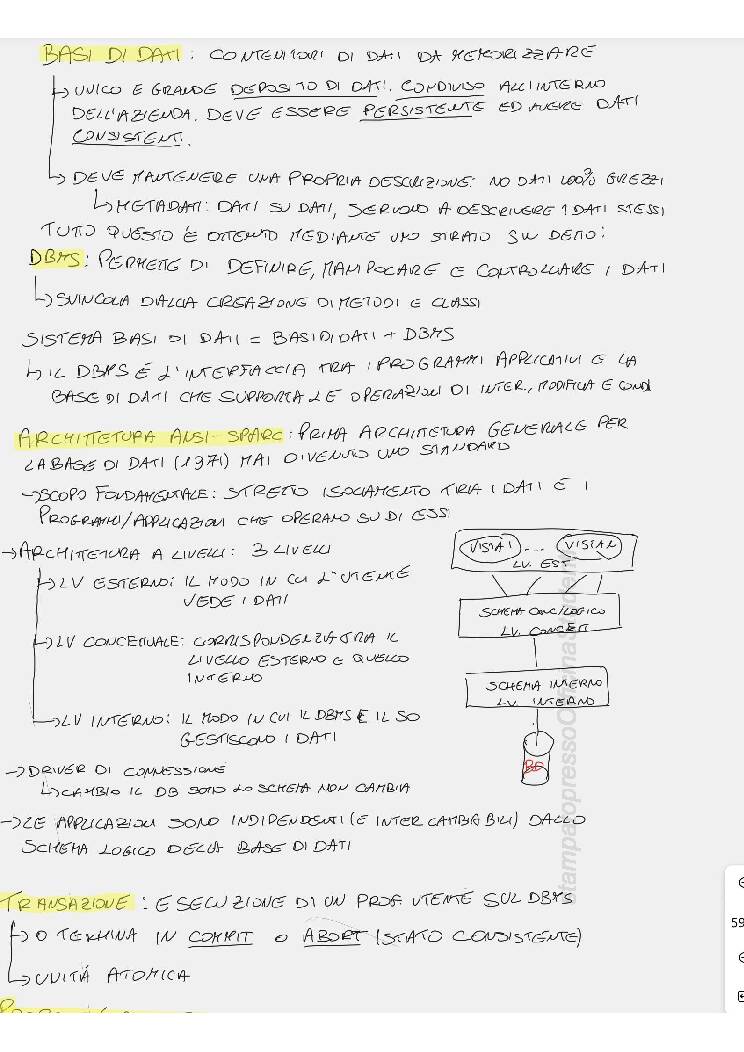 BASI DI DATI : CONTENITORI DI DATI DA MEMORIZZARE
↳ UNICO E GRANDE DEPOSITO DI DATI. CONDIVISO ALL'INTERNO
DELL'AZIENDA. DEVE ESSERE PERSISTENTE ED AVERE DATI
CONSISTENTI.
↳ DEVE MANTENERE UNA PROPRIA DESCRIZIONE: NO DATI 100% GREZZI
↳ METADATI: DATI SU DATI, SERVONO A DESCRIVERE I DATI STESSI
TUTO QUESTO È OTTENUTO MEDIANTE UNO STRATO SW DETTO:
DBMS: PERMETTE DI DEFINIRE, MANIPOLARE E CONTROLLARE I DATI
↳ SVINCOLA DALLA CREAZIONE DI METODI E CLASSI
SISTEMA BASI DI DATI = BASI DI DATI + DBMS
↳ IL DBMS È L'INTERFACCIA TRA I PROGRAMMI APPLICATIVI E LA
BASE DI DATI CHE SUPPORTA LE OPERAZIONI DI INTER., MODIFICA E
ARCHITETTURA ANSI-SPARC: PRIMA ARCHITETTURA GENERALE PER
LA BASE DI DATI (1971) MAI DIVENUTO UNO STANDARD
→ SCOPO FONDAMENTALE: STRETTO ISOLAMENTO TRA I DATI E I
PROGRAMMI/APPLICAZIONI CHE OPERANO SU DI ESSI
→ ARCHITETTURA A LIVELLI: 3 LIVELLI
↳ LV ESTERNO: IL MODO IN CUI L'UTENTE
VEDE I DATI
↳ LV CONCETTUALE: CORRISPONDENZA TRA IL
LIVELLO ESTERNO E QUELLO
INTERNO
↳ LV INTERNO: IL MODO IN CUI IL DBMS E IL SO
GESTISCONO I DATI
VISTA 1 ... VISTA N
LV. EST
SCHEMA CONC/LOGICO
LV. CONCETT
SCHEMA INTERNO
LV. INTERNO
→ DRIVER DI CONNESSIONE
↳ CAMBIO IL DB SOTTO LO SCHEMA NON CAMBIA
→ LE APPLICAZIONI SONO INDIPENDENTI (E INTERCAMBIABILI) DALLO
SCHEMA LOGICO DELLA BASE DI DATI
TRANSAZIONE : ESECUZIONE DI UN PROG. UTENTE SUL DBMS
↳ O TERMINA IN COMMIT O ABORT (STATO CONSISTENTE)
↳ UNITÀ ATOMICA
59